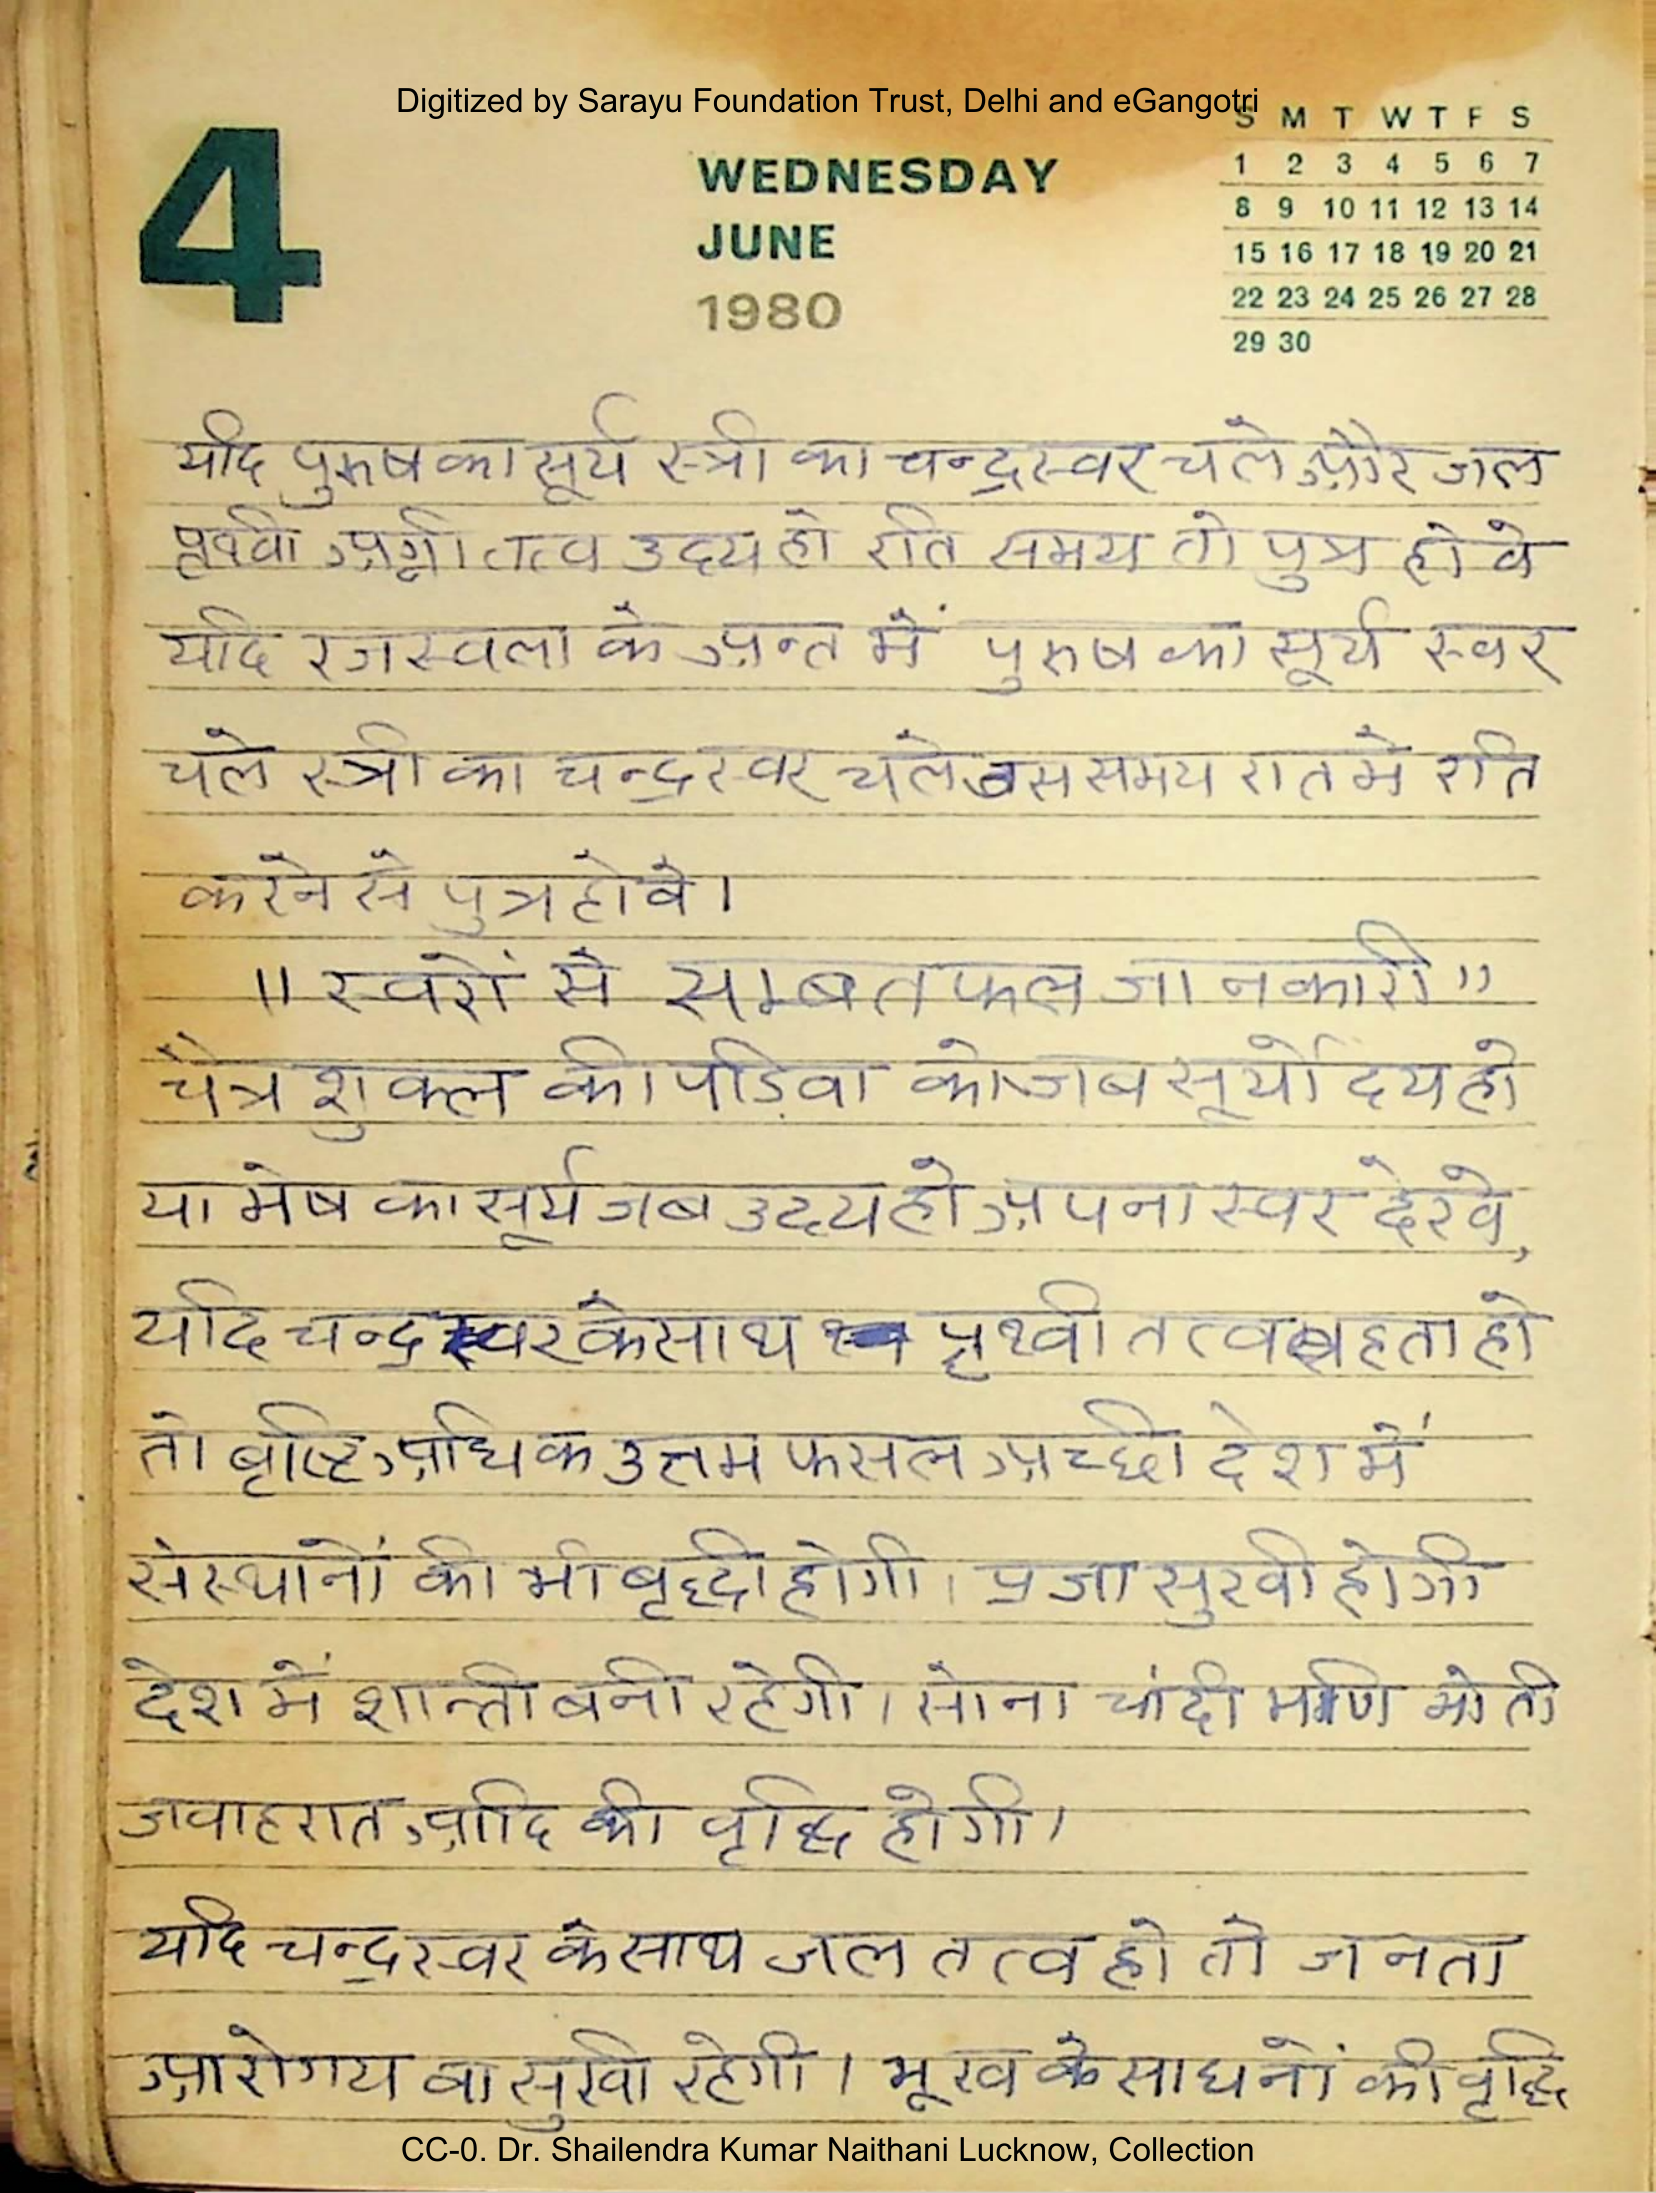 Digitized by Sarayu Foundation Trust, Delhi and eGangotri
4
WEDNESDAY
JUNE
1980
S M T W T F S
1 2 3 4 5 6 7
8 9 10 11 12 13 14
15 16 17 18 19 20 21
22 23 24 25 26 27 28
29 30
यदि पुरुष का सूर्य स्त्री का चन्द्रस्वर चले और जल
पृथ्वी अग्नी तत्व उदय हो रति समय तो पुत्र होवे
यदि रजस्वला के अन्त में पुरुष का सूर्य स्वर
चले स्त्री का चन्द्रस्वर चले उस समय रात मे रति
करने से पुत्र होवे।
॥ स्वरों से सम्बत फल जानकारी"
चैत्र शुक्ल की पडिवा को जब सूर्योदय हो
या मेष का सूर्य जब उदय हो अपना स्वर देखे,
यदि चन्द्र स्वर के साथ पृथ्वी तत्व बहता हो
तो बृष्टि अधिक उत्तम फसल अच्छी देश में
संस्थानों की भी बृद्धी होगी। प्रजा सुखी होगी
देश में शान्ती बनी रहेगी। सोना चांदी मणि मोती
जवाहरात आदि की वृद्धि होगी।
यदि चन्द्रस्वर के साथ जल तत्व हो तो जनता
आरोगय वा सुखी रहेगी। भूख के साधनों की वृद्धि
CC-0. Dr. Shailendra Kumar Naithani Lucknow, Collection